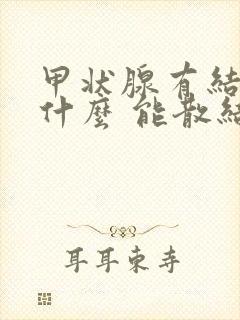 甲状腺有結
什麼 能散結
耳耳東寺